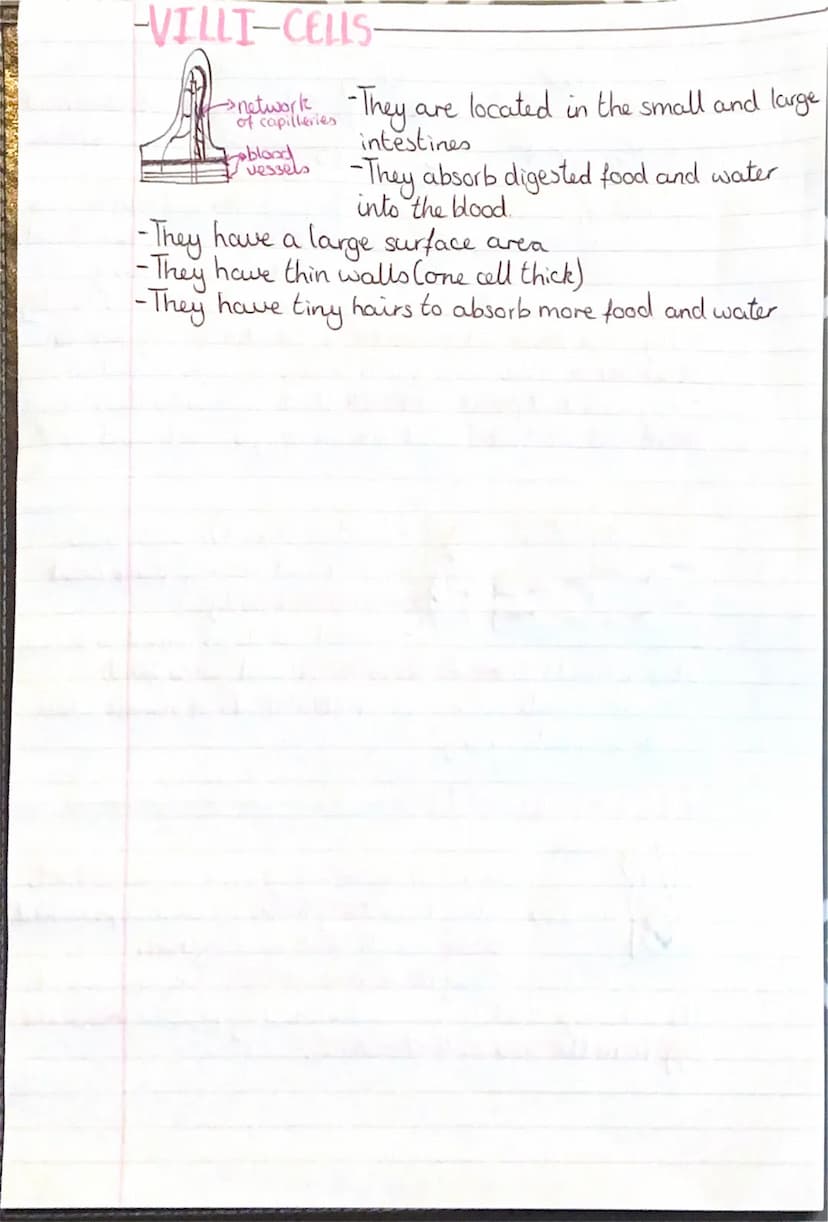 -VILLI-CELLS-
network
of capilleries
blood
vessels
-They are located in the small and large
intestines
-They absorb digested food and water
into the blood.
-They have a large surface area
-They have thin walls (one cell thick)
-They have tiny hairs to absorb more food and water